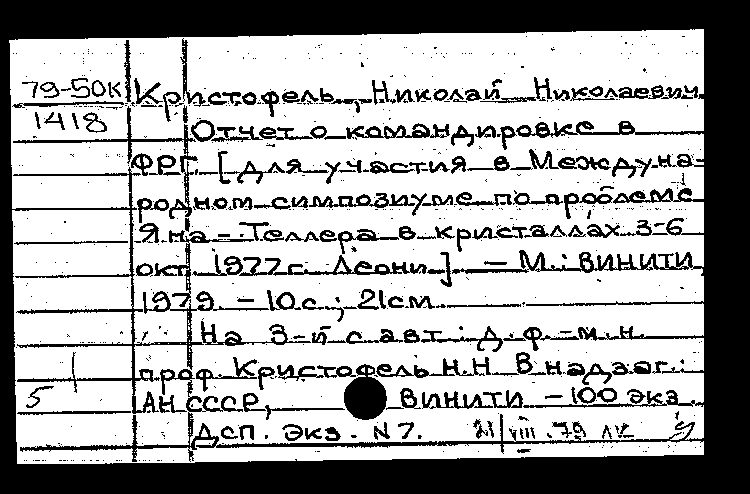 79-50к Кристофель, Николай Николаевич
1418 Отчет о командировке в
ФРГ. [для участия в Междуна-
родном симпозиуме по проблеме
Яна-Теллера в кристаллах 3-6
окт. 1977г. Леони]. - М.: ВИНИТИ,
1979. - 10с.; 21см.
На 3-й с авт.: д.ф.-м.н.
проф. Кристофель Н.Н В надзаг.:
5 АН СССР, ВИНИТИ - 100 экз.
Дсп. Экз. N 7. 21/viii.79